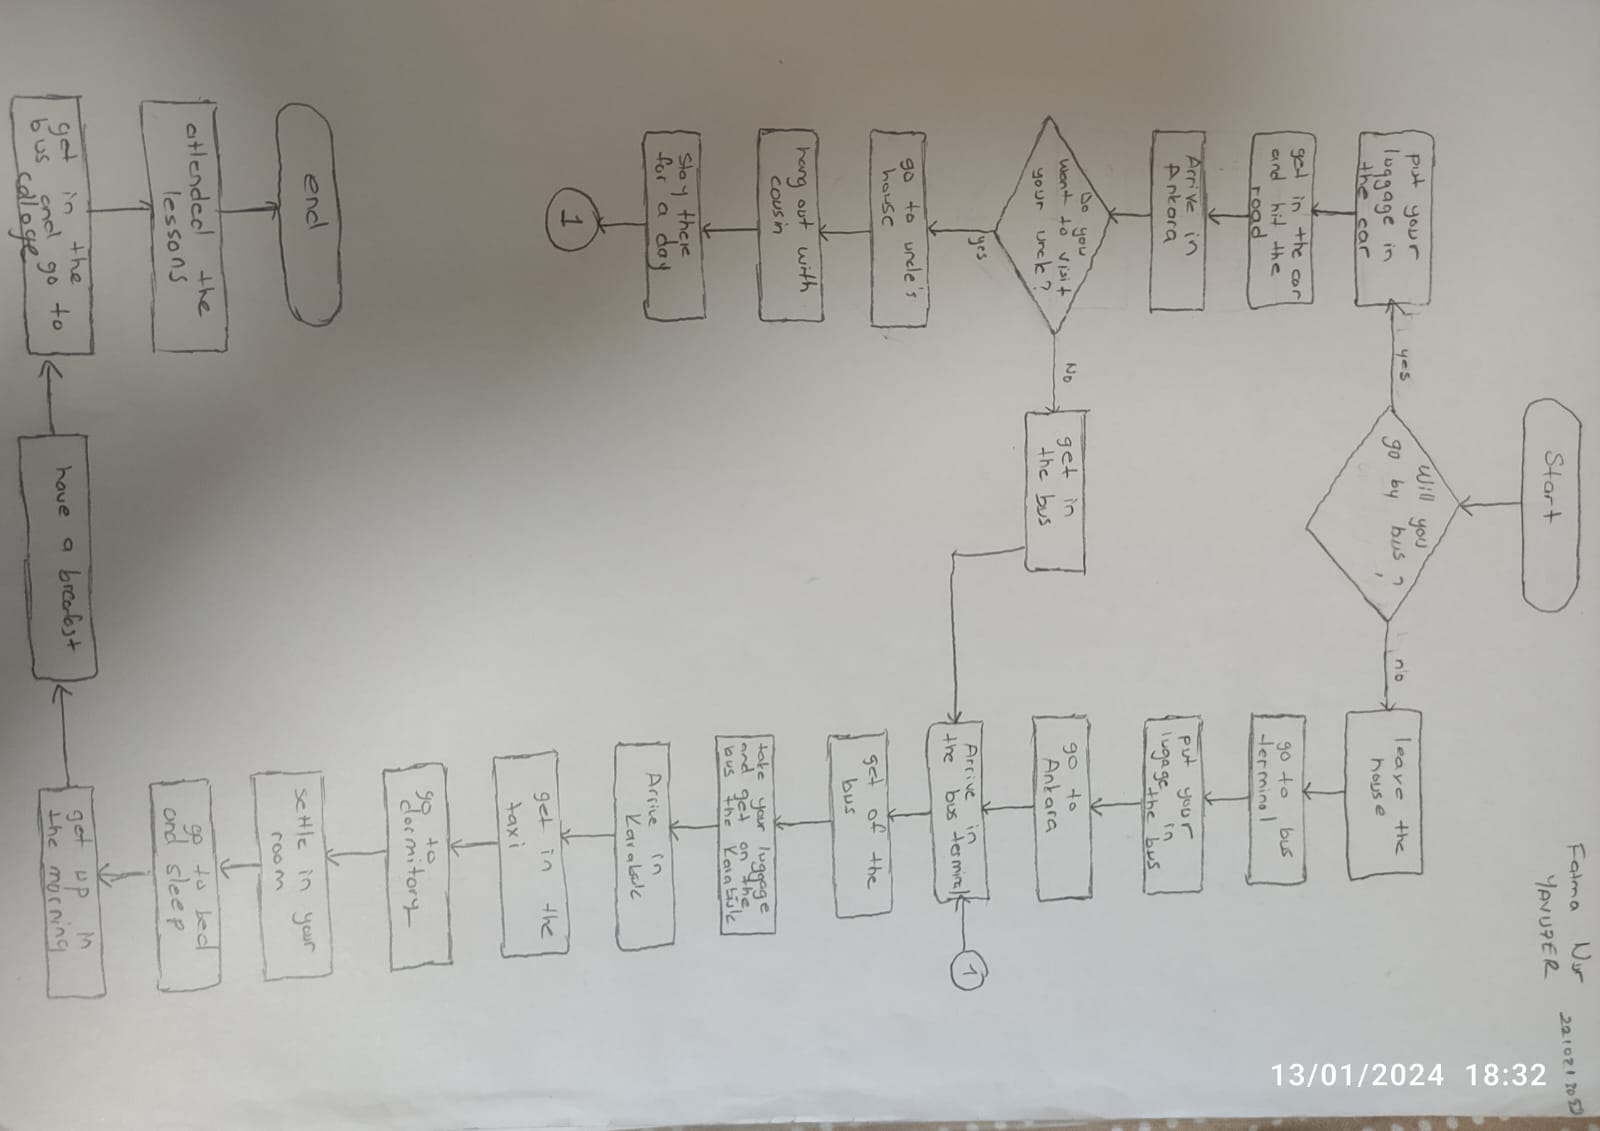 Fatma Nur
YAVUZER
Start
Will you
go by bus?
yes
no
put your
luggage in
the car
get in the car
and hit the
road
Arrive in
Ankara
Do you
want to visit
your uncle?
yes
No
go to uncle's
house
hang out with
cousin
stay there
for a day
1
get in
the bus
leave the
house
go to bus
terminal
put your
lugage in
the bus
go to
Ankara
Arrive in
the bus terminal
1
get of the
bus
take your luggage
and get on the
bus the Karabük
Arrive in
Karabük
get in the
taxi
go to
dormitory
settle in your
room
go to bed
and sleep
get up in
the morning
have a breakfast
get in the
bus and go to
collage
attended the
lessons
end
13/01/2024 18:32